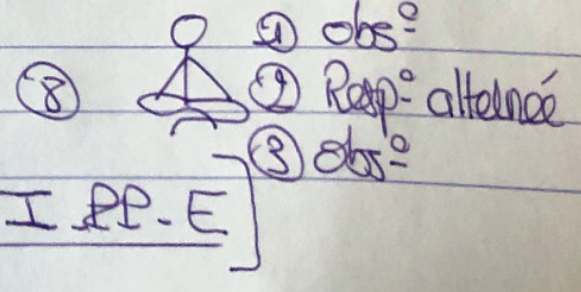 ① obsº
⑧ ② Respº alternée
③ obsº
I PP-E